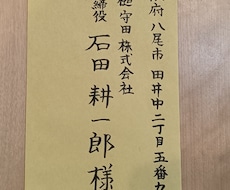 府 八尾市 田井中二丁目五番
守田 株式会社
締役 石田 耕一郎 様